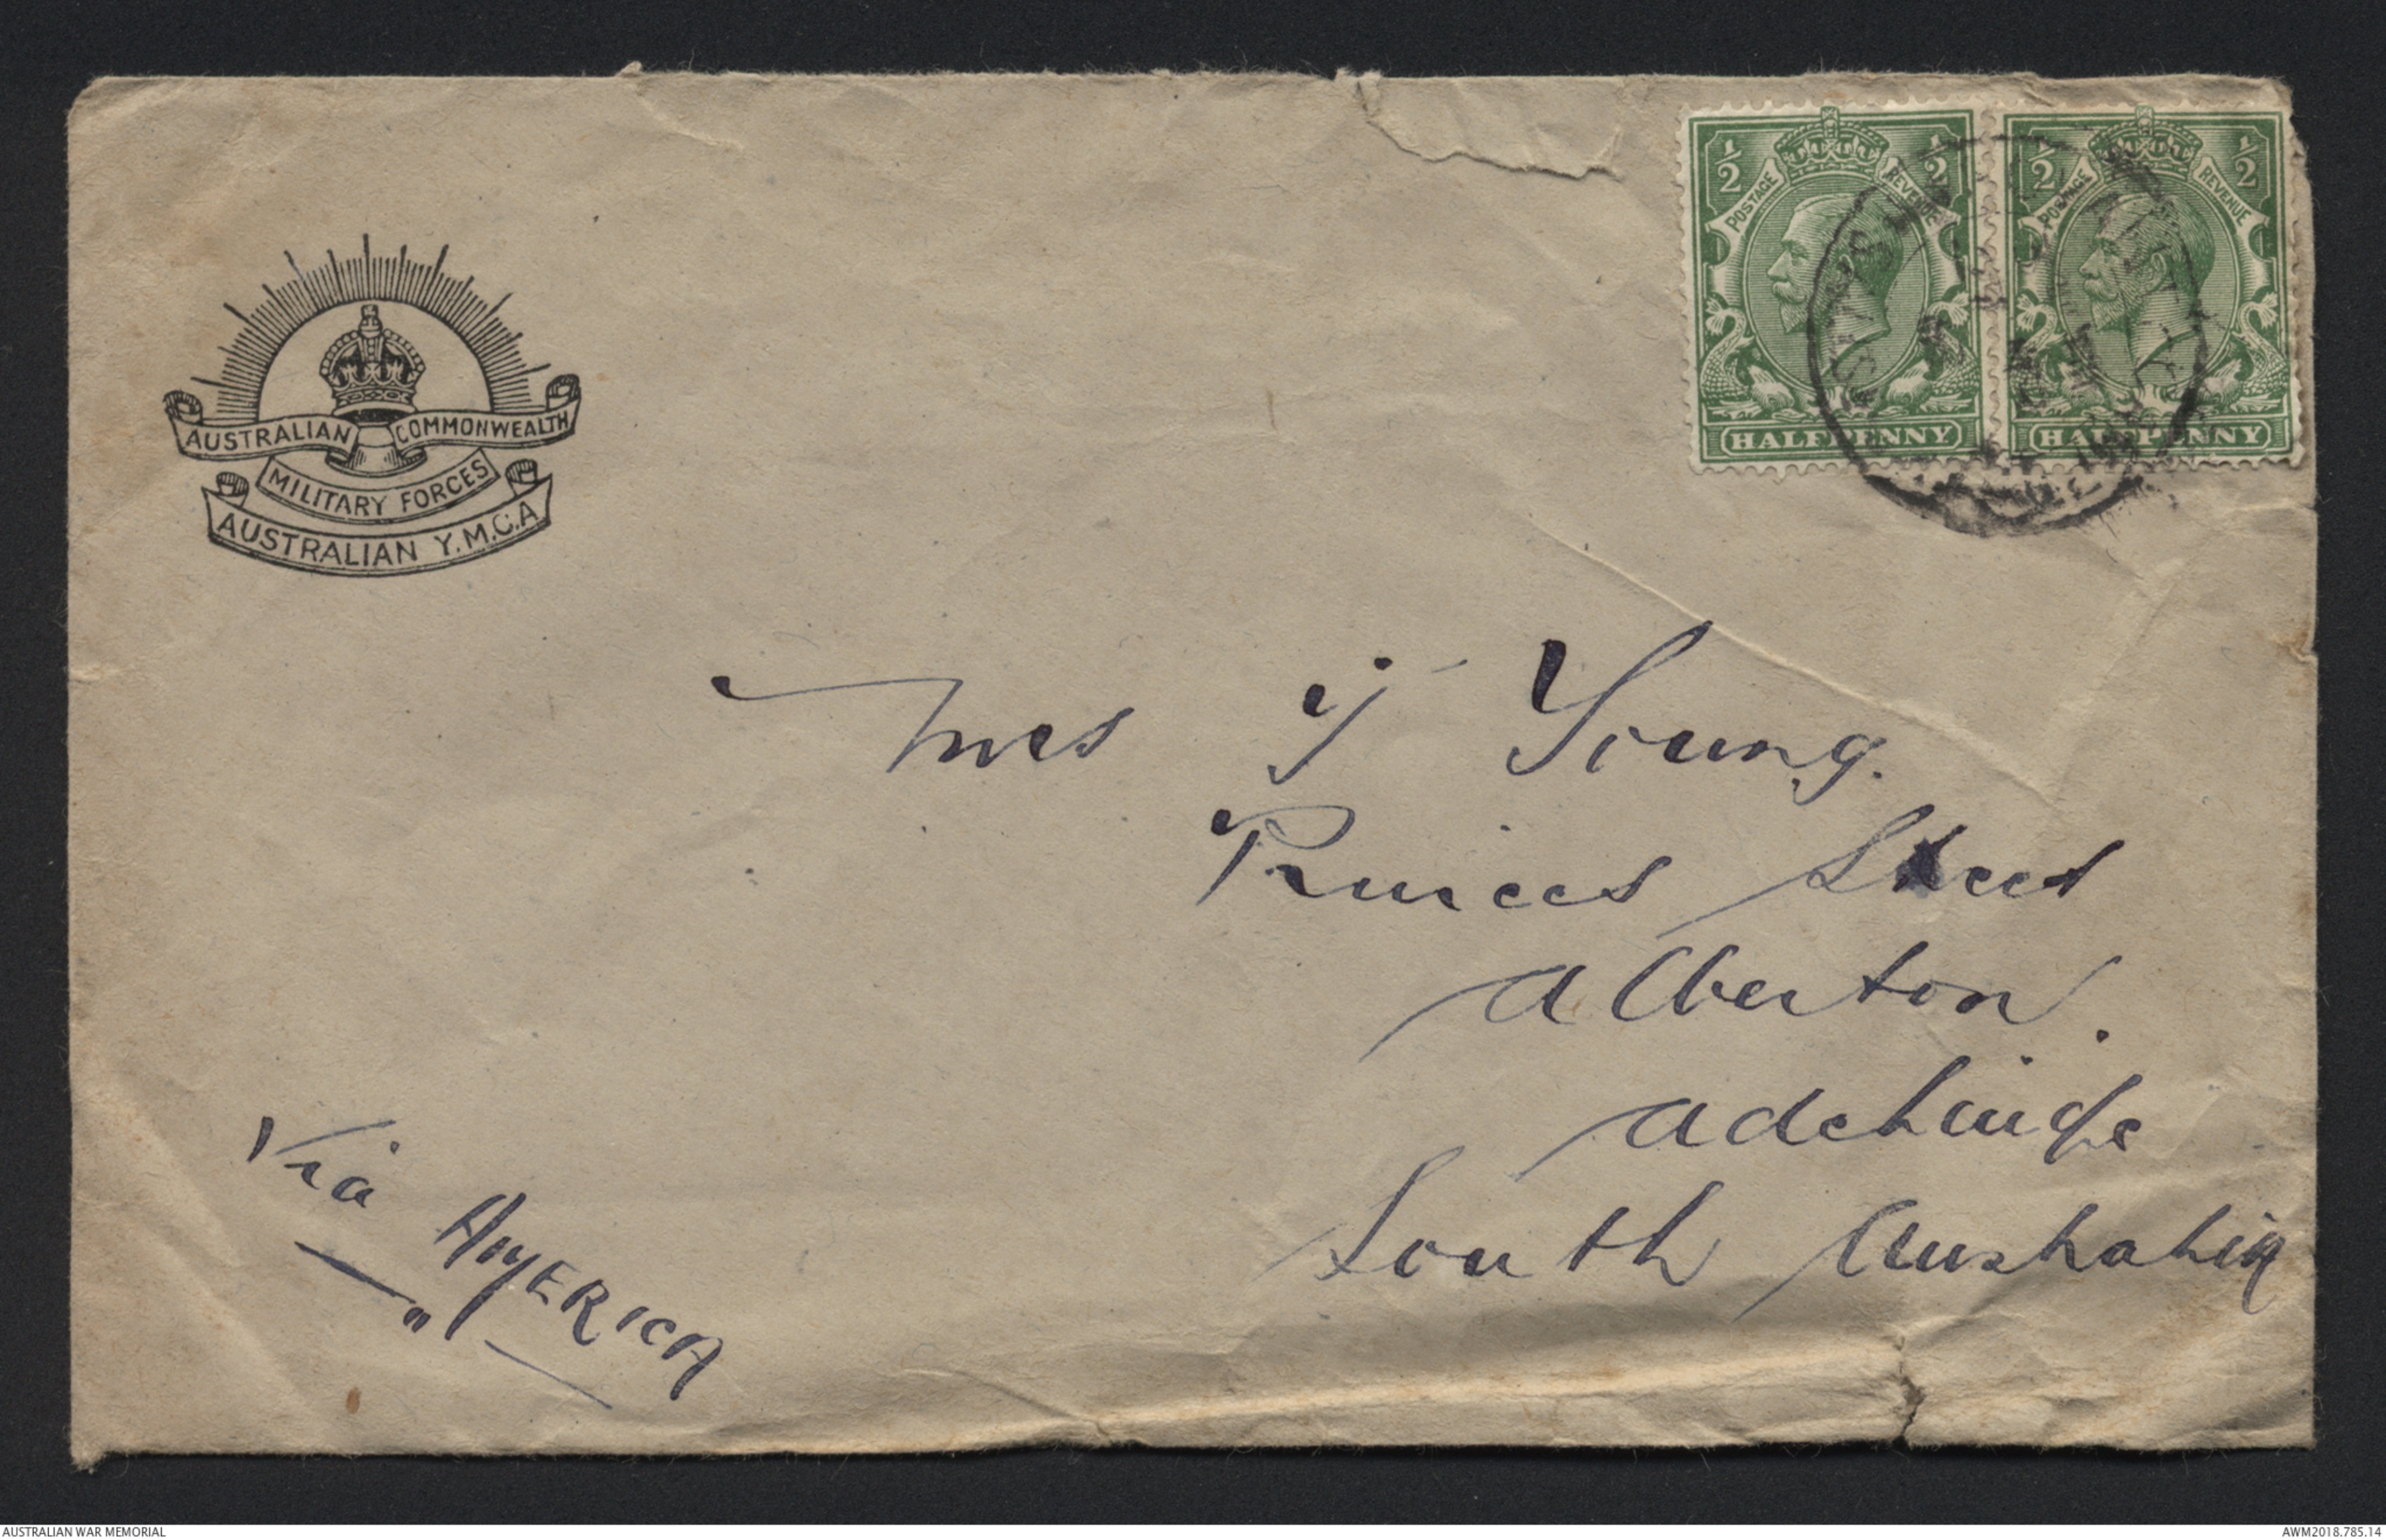 AUSTRALIAN COMMONWEALTH
MILITARY FORCES
AUSTRALIAN Y.M.C.A
½ POSTAGE REVENUE ½
HALFPENNY
½ POSTAGE REVENUE ½
HALFPENNY
Mrs J Young.
Princes Street
Alberton.
Adelaide
South Australia
Via AMERICA
AUSTRALIAN WAR MEMORIAL
AWM2018.785.14